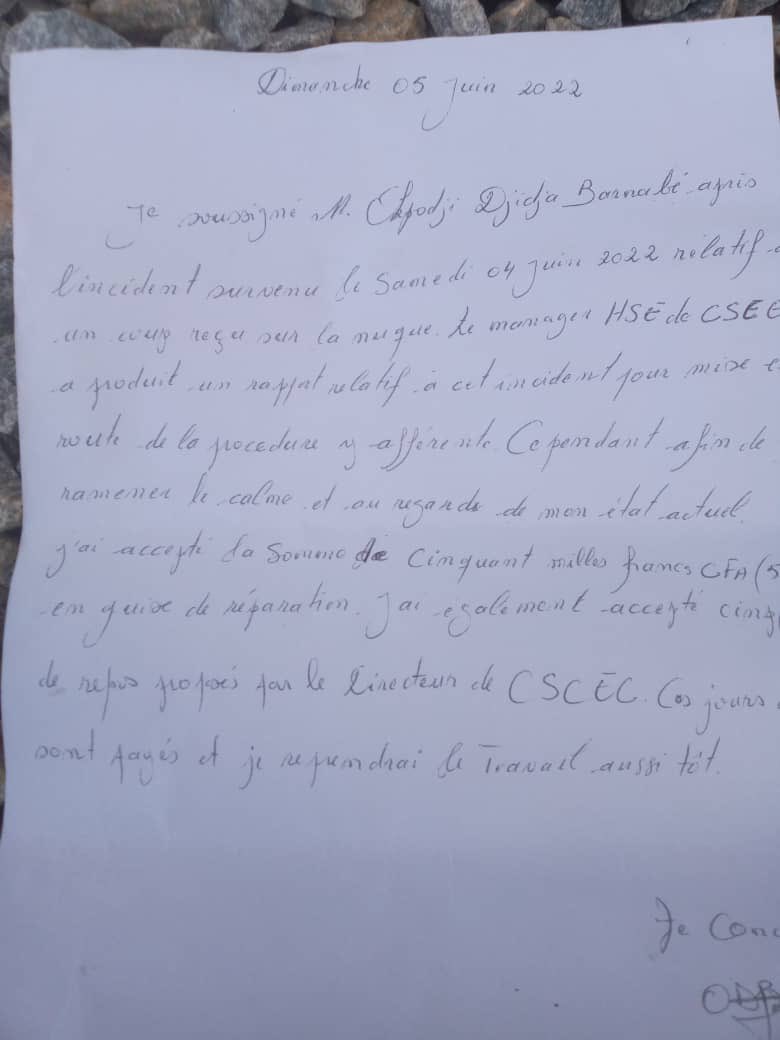 Dimanche 05 Juin 2022
Je soussigné M. Okpodji Djidja Barnabé après
l'incident survenu le Samedi 04 juin 2022 relatif
un coup reçu sur la nuque. Le manager HSE de CSCE
a produit un rapport relatif à cet incident pour mise e
route de la procedure y afférente. Cependant afin de
ramener le calme et au regard de mon état actuel.
j'ai accepté la Somme de Cinquant milles francs CFA (5
en guise de réparation. J'ai également accepté cinq
de repos proposés par le Directeur de CSCEC. Ces jours
sont payés et je reprendrai le Travail aussi tôt.
Je Conc